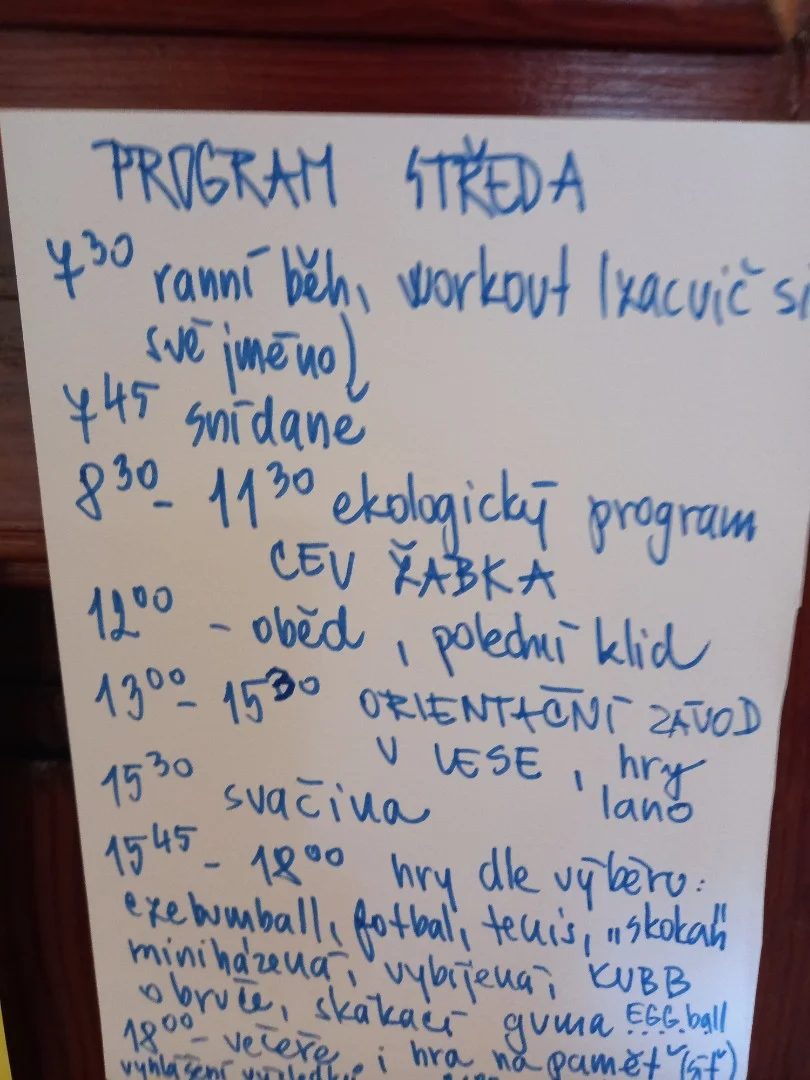 PROGRAM STŘEDA
7³⁰ ranní běh, workout (zacvič si
své jméno)
7⁴⁵ snídaně
8³⁰ - 11³⁰ ekologický program
CEV ŽABKA
12⁰⁰ - oběd, polední klid
13⁰⁰ - 15³⁰ ORIENTAČNÍ ZÁVOD
V LESE, hry
lano
15³⁰ svačina
15⁴⁵ - 18⁰⁰ hry dle výběru:
fotbal, tenis, "skokan"
miniházená, vybíjená, KUBB
obruče, skákací guma EGG.ball
18⁰⁰ - večeře, hra na paměť (síť)
vyhlášení